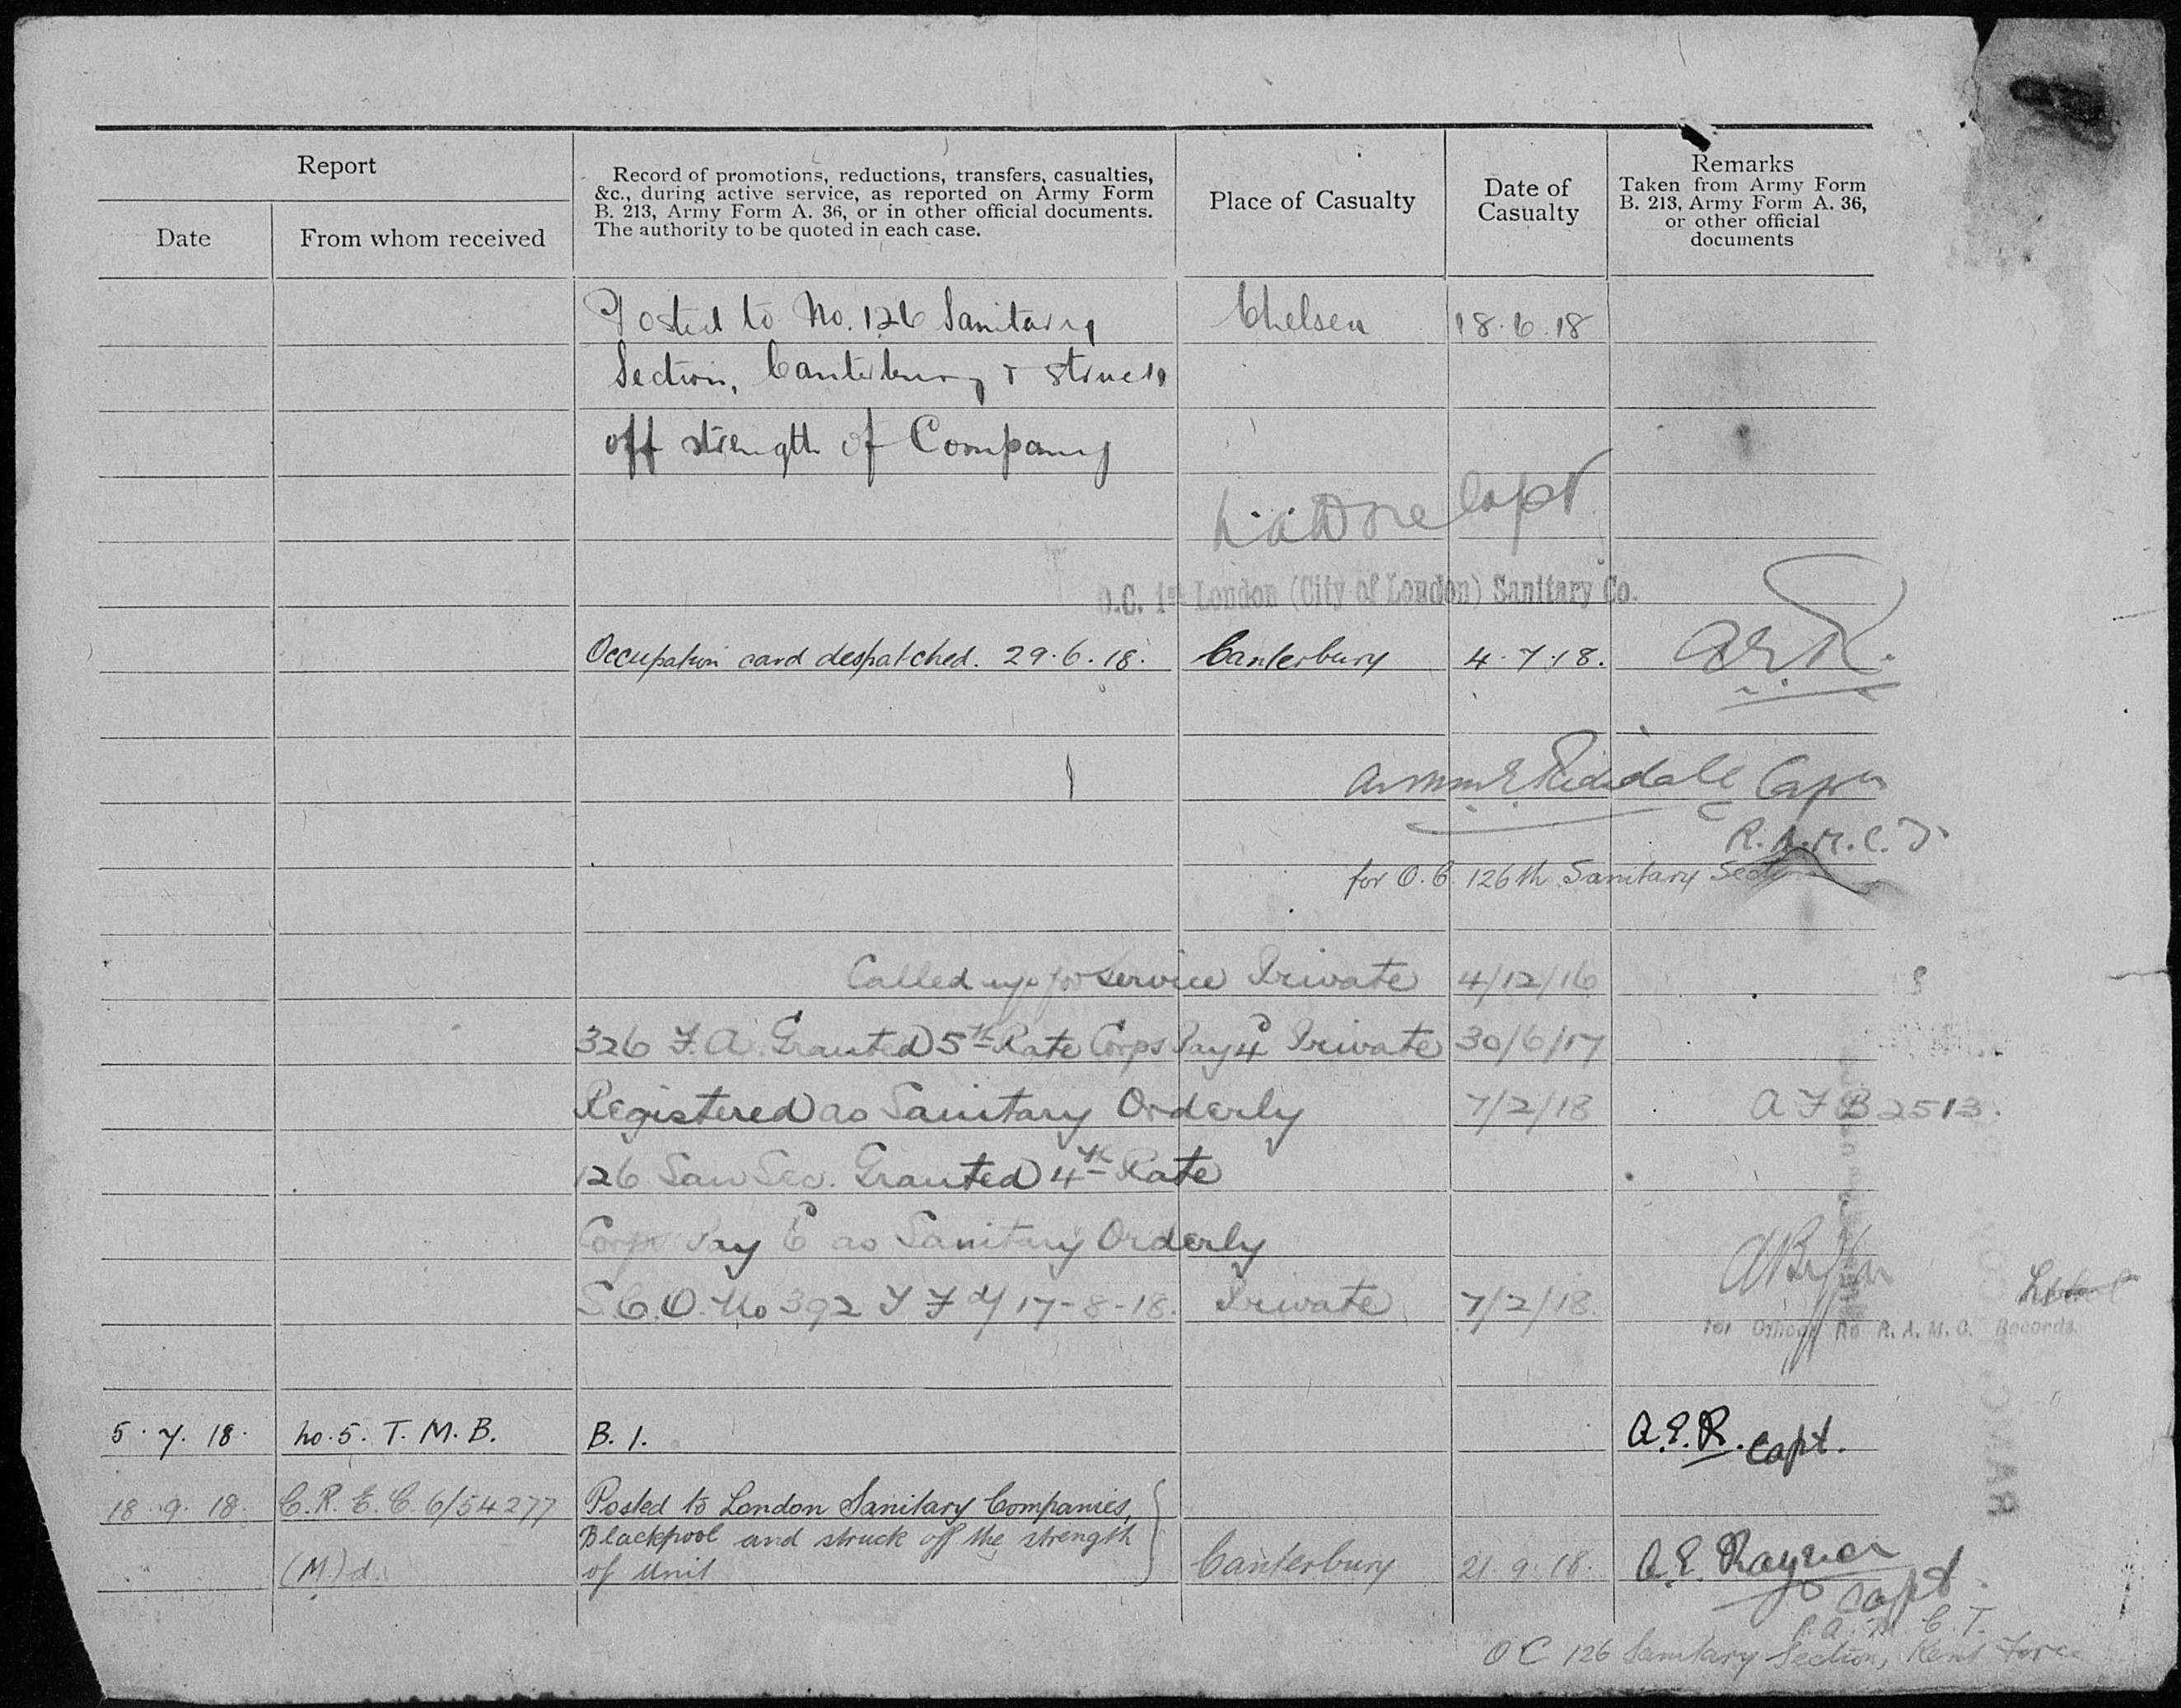 Report
Date
From whom received
Record of promotions, reductions, transfers, casualties,
&c., during active service, as reported on Army Form
B. 213, Army Form A. 36, or in other official documents.
The authority to be quoted in each case.
Place of Casualty
Date of
Casualty
Remarks
Taken from Army Form
B. 213, Army Form A. 36,
or other official
documents
Posted to No. 126 Sanitary Chelsea 18.6.18
Section, Canterbury & struck
off strength of Company
Capt
O.C. 1st London (City of London) Sanitary Co.
Occupation card despatched. 29.6.18. Canterbury 4.7.18. A.E.R.
Capt
R.A.M.C. T.
for O.C. 126th Sanitary Sectn
Called up for service Private 4/12/16
326 F.A. Granted 5th Rate Corps Pay 4d Private 30/6/17
Registered as Sanitary Orderly 7/2/18 A F B 2513.
126 San Sec. Granted 4th Rate
Corps Pay 6d as Sanitary Orderly
S.C.O. No 392 T F d/ 17-8-18. Private 7/2/18.
for Officer i/c R.A.M.C. Records.
5.7.18. No.5. T.M.B. B.1. A.E.R. Capt.
18.9.18. C.R.E.C. 6/54277 Posted to London Sanitary Companies,
Blackpool and struck off the strength
(M) d. of unit Canterbury 21.9.18. A.E. Rayner
Capt.
R.A.M.C.T.
OC 126 Sanitary Section, Kent Force